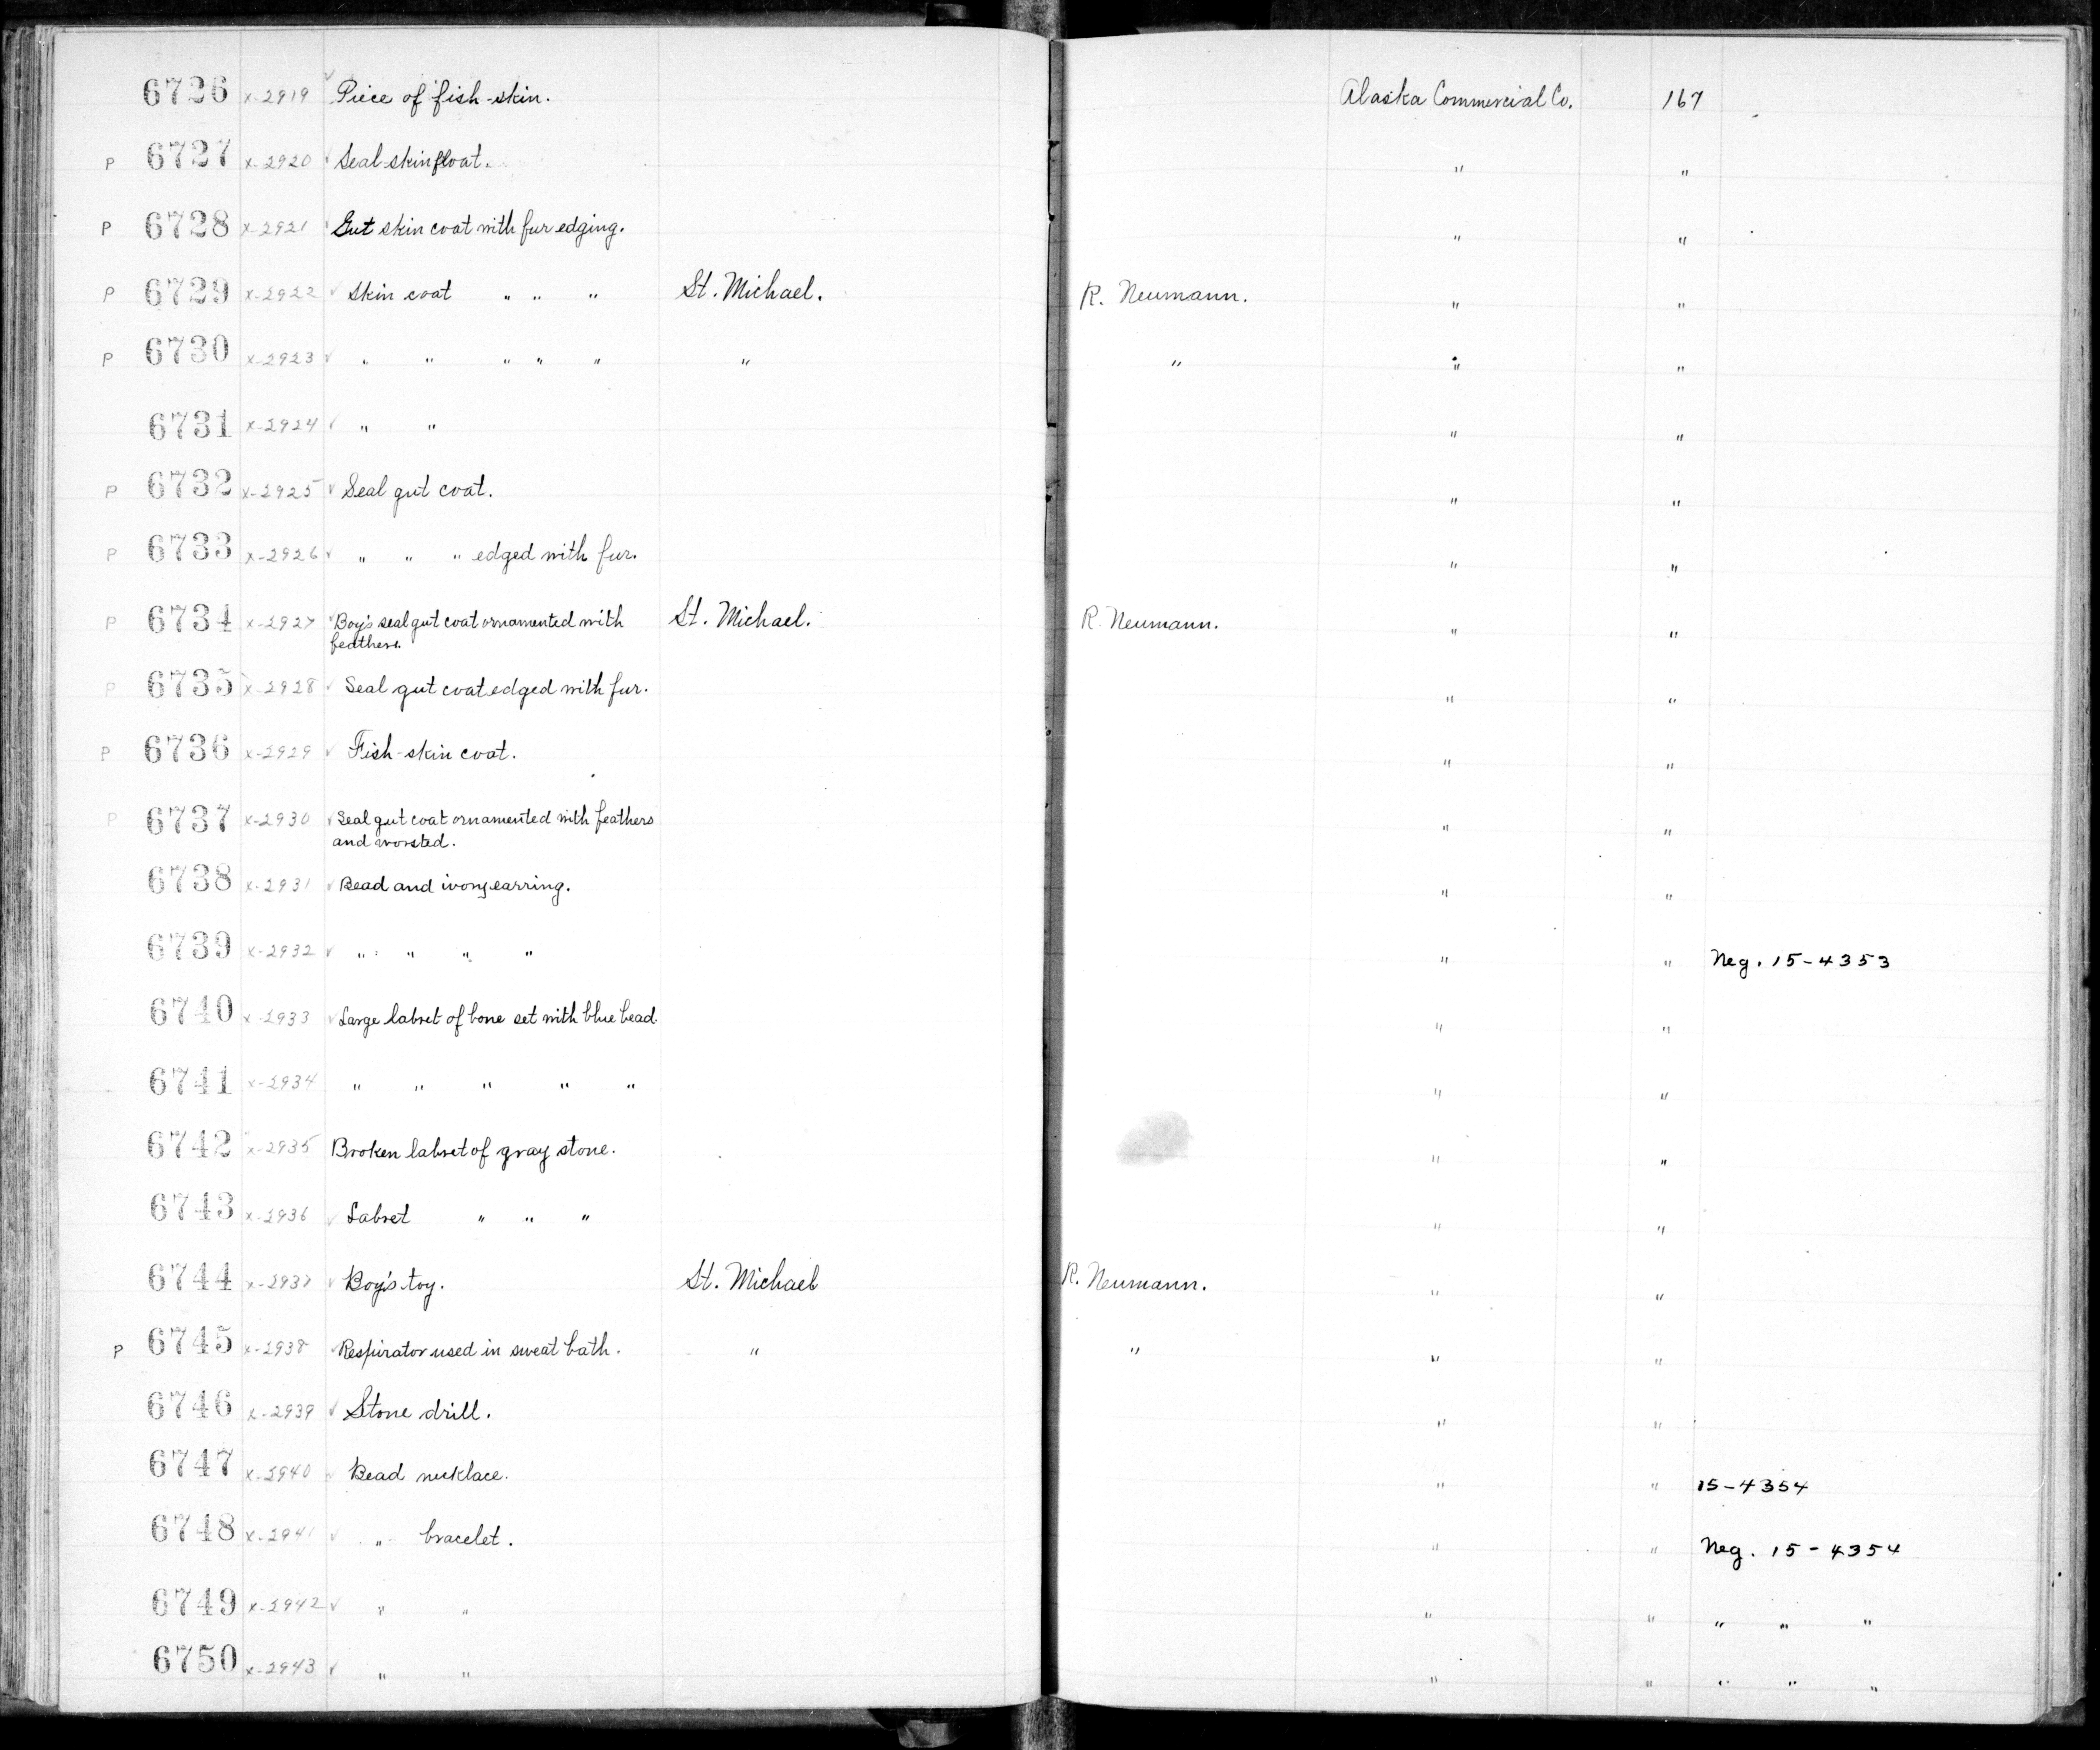 6726 x-2919 Piece of fish-skin. Alaska Commercial Co. 167
P 6727 x-2920 ✓ Seal-skin float. " "
P 6728 x-2921 Gut skin coat with fur edging. " "
P 6729 x-2922 ✓ Skin coat " " " St. Michael. R. Neumann. " "
P 6730 x-2923 ✓ " " " " " " " " "
6731 x-2924 ✓ " " " "
P 6732 x-2925 ✓ Seal gut coat. " "
P 6733 x-2926 ✓ " " " edged with fur. " "
P 6734 x-2927 ✓ Boy's seal gut coat ornamented with St. Michael. R. Neumann. " "
feathers.
P 6735 x-2928 ✓ Seal gut coat edged with fur. " "
P 6736 x-2929 ✓ Fish-skin coat. " "
P 6737 x-2930 ✓ Seal gut coat ornamented with feathers " "
and worsted.
6738 x-2931 ✓ Bead and ivory earring. " "
6739 x-2932 ✓ " " " " " " Neg. 15-4353
6740 x-2933 ✓ Large labret of bone set with blue bead. " "
6741 x-2934 " " " " " " "
6742 x-2935 Broken labret of gray stone. " "
6743 x-2936 ✓ Labret " " " " "
6744 x-2937 ✓ Boy's toy. St. Michael R. Neumann. " "
P 6745 x-2938 ✓ Respirator used in sweat bath. " " " "
6746 x-2939 ✓ Stone drill. " "
6747 x-2940 ✓ Bead necklace. " " 15-4354
6748 x-2941 ✓ " bracelet. " " Neg. 15-4354
6749 x-2942 ✓ " " " " " " "
6750 x-2943 ✓ " " " " " " "